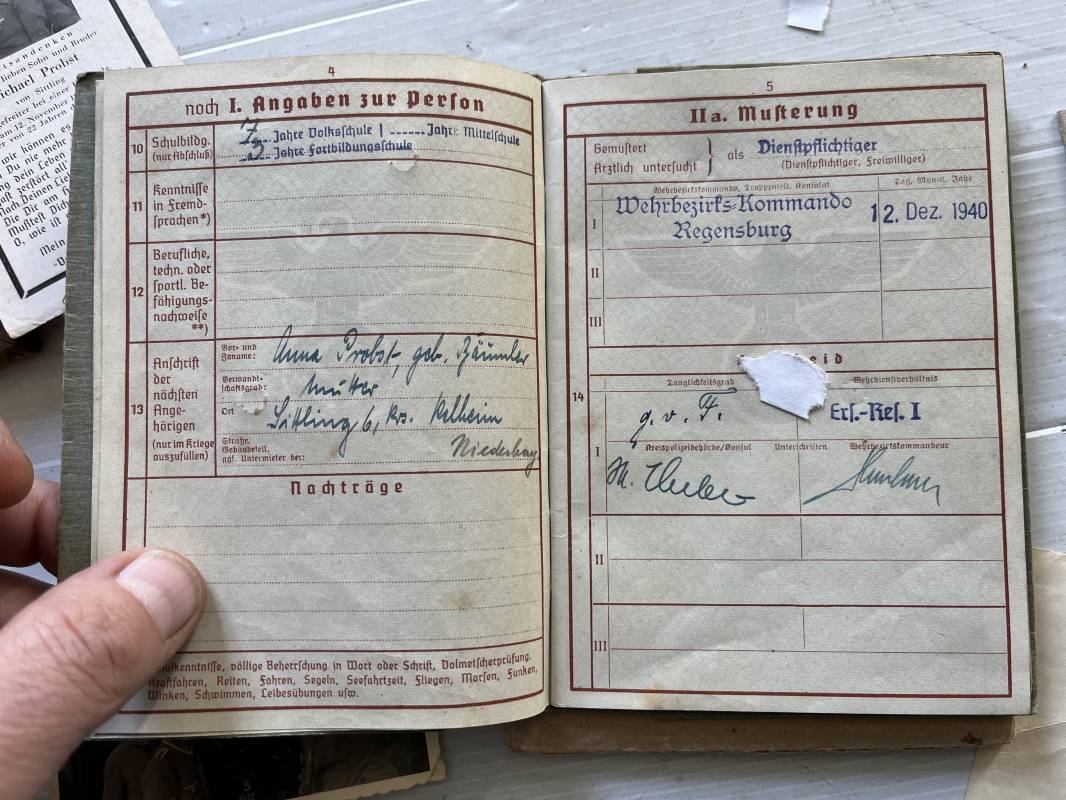 tsandenken
lieben Sohn und Bruder
ichael Probst
von Sittling
efreiter bei einer
am 12. November
er von 22 Jahren
wir können es
Du nie mehr
ng dein Leben
aß zerstört all
nach Deinen Lie
Die Dir am H
Mußtest Dich
O, wie ist
Mein
4
noch I. Angaben zur Person
10 Schulbildg. (nur Abschluß)
7 Jahre Volksschule | ...... Jahre Mittelschule
3 Jahre Fortbildungsschule
11 Kenntnisse in Fremdsprachen*)
12 Berufliche, techn. oder sportl. Befähigungsnachweise **)
13 Anschrift der nächsten Angehörigen (nur im Kriege auszufüllen)
Vor- und Zuname: Anna Probst, geb. Bäumler
Verwandtschaftsgrad: Mutter
Ort Sittling 6, Krs. Kelheim
Straße, Gebäudeteil, ggf. Untermieter bei: Niederbay.
Nachträge
ulkenntnisse, völlige Beherrschung in Wort oder Schrift, Dolmetscherprüfung.
Kraftfahren, Reiten, Fahren, Segeln, Seefahrtzeit, Fliegen, Morsen, Funken,
Winken, Schwimmen, Leibesübungen usw.
5
IIa. Musterung
Gemustert
Ärztlich untersucht } als Dienstpflichtiger
(Dienstpflichtiger, Freiwilliger)
Wehrbezirkskommando, Truppenteil, Konsulat Tag, Monat, Jahr
I Wehrbezirks-Kommando Regensburg 12. Dez. 1940
II
III
eid
14
Tauglichkeitsgrad Wehrdienstverhältnis
I g. v. F. Ers.-Res. I
Kreispolizeibehörde/Konsul Unterschriften Wehrbezirkskommandeur
II
III